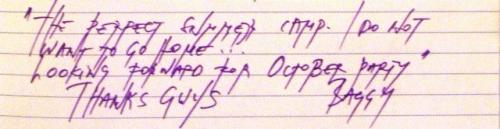 "THE PERFECT SUMMER CAMP. I DO NOT
WANT TO GO HOME...
LOOKING FORWARD FOR OCTOBER PARTY"
THANKS GUYS BAGGY